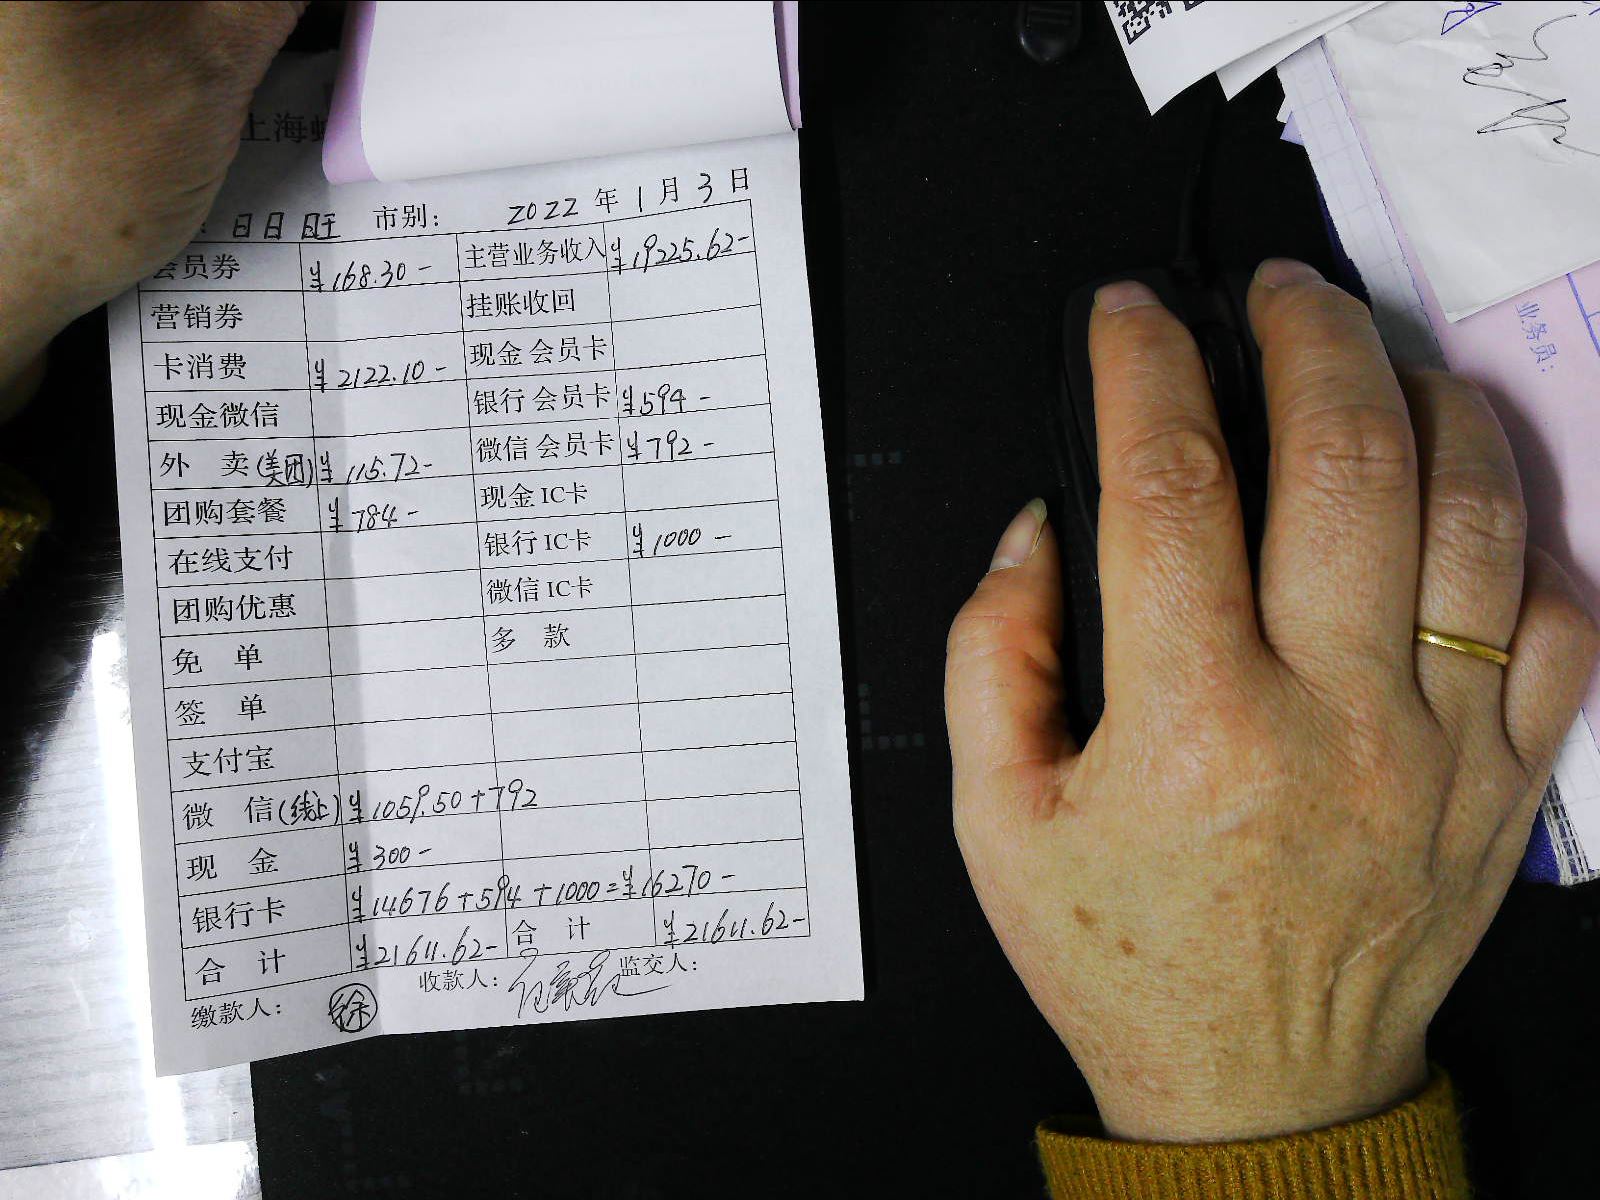 上海
日日旺 市别: 2022 年 1 月 3 日
会员券 ¥168.30- 主营业务收入 ¥19225.62-
营销券 挂账收回
卡消费 ¥2122.10- 现金 会员卡
现金微信 银行 会员卡 ¥594-
外 卖(美团) ¥115.72- 微信 会员卡 ¥792-
团购套餐 ¥784- 现金 IC卡
在线支付 银行 IC卡 ¥1000-
团购优惠 微信 IC卡
免 单 多 款
签 单
支付宝
微 信(线上) ¥1059.50+792
现 金 ¥300-
银行卡 ¥14676+594+1000=¥16270-
合 计 ¥21611.62- 合 计 ¥21611.62-
缴款人: 徐 收款人: 监交人:
业务员: